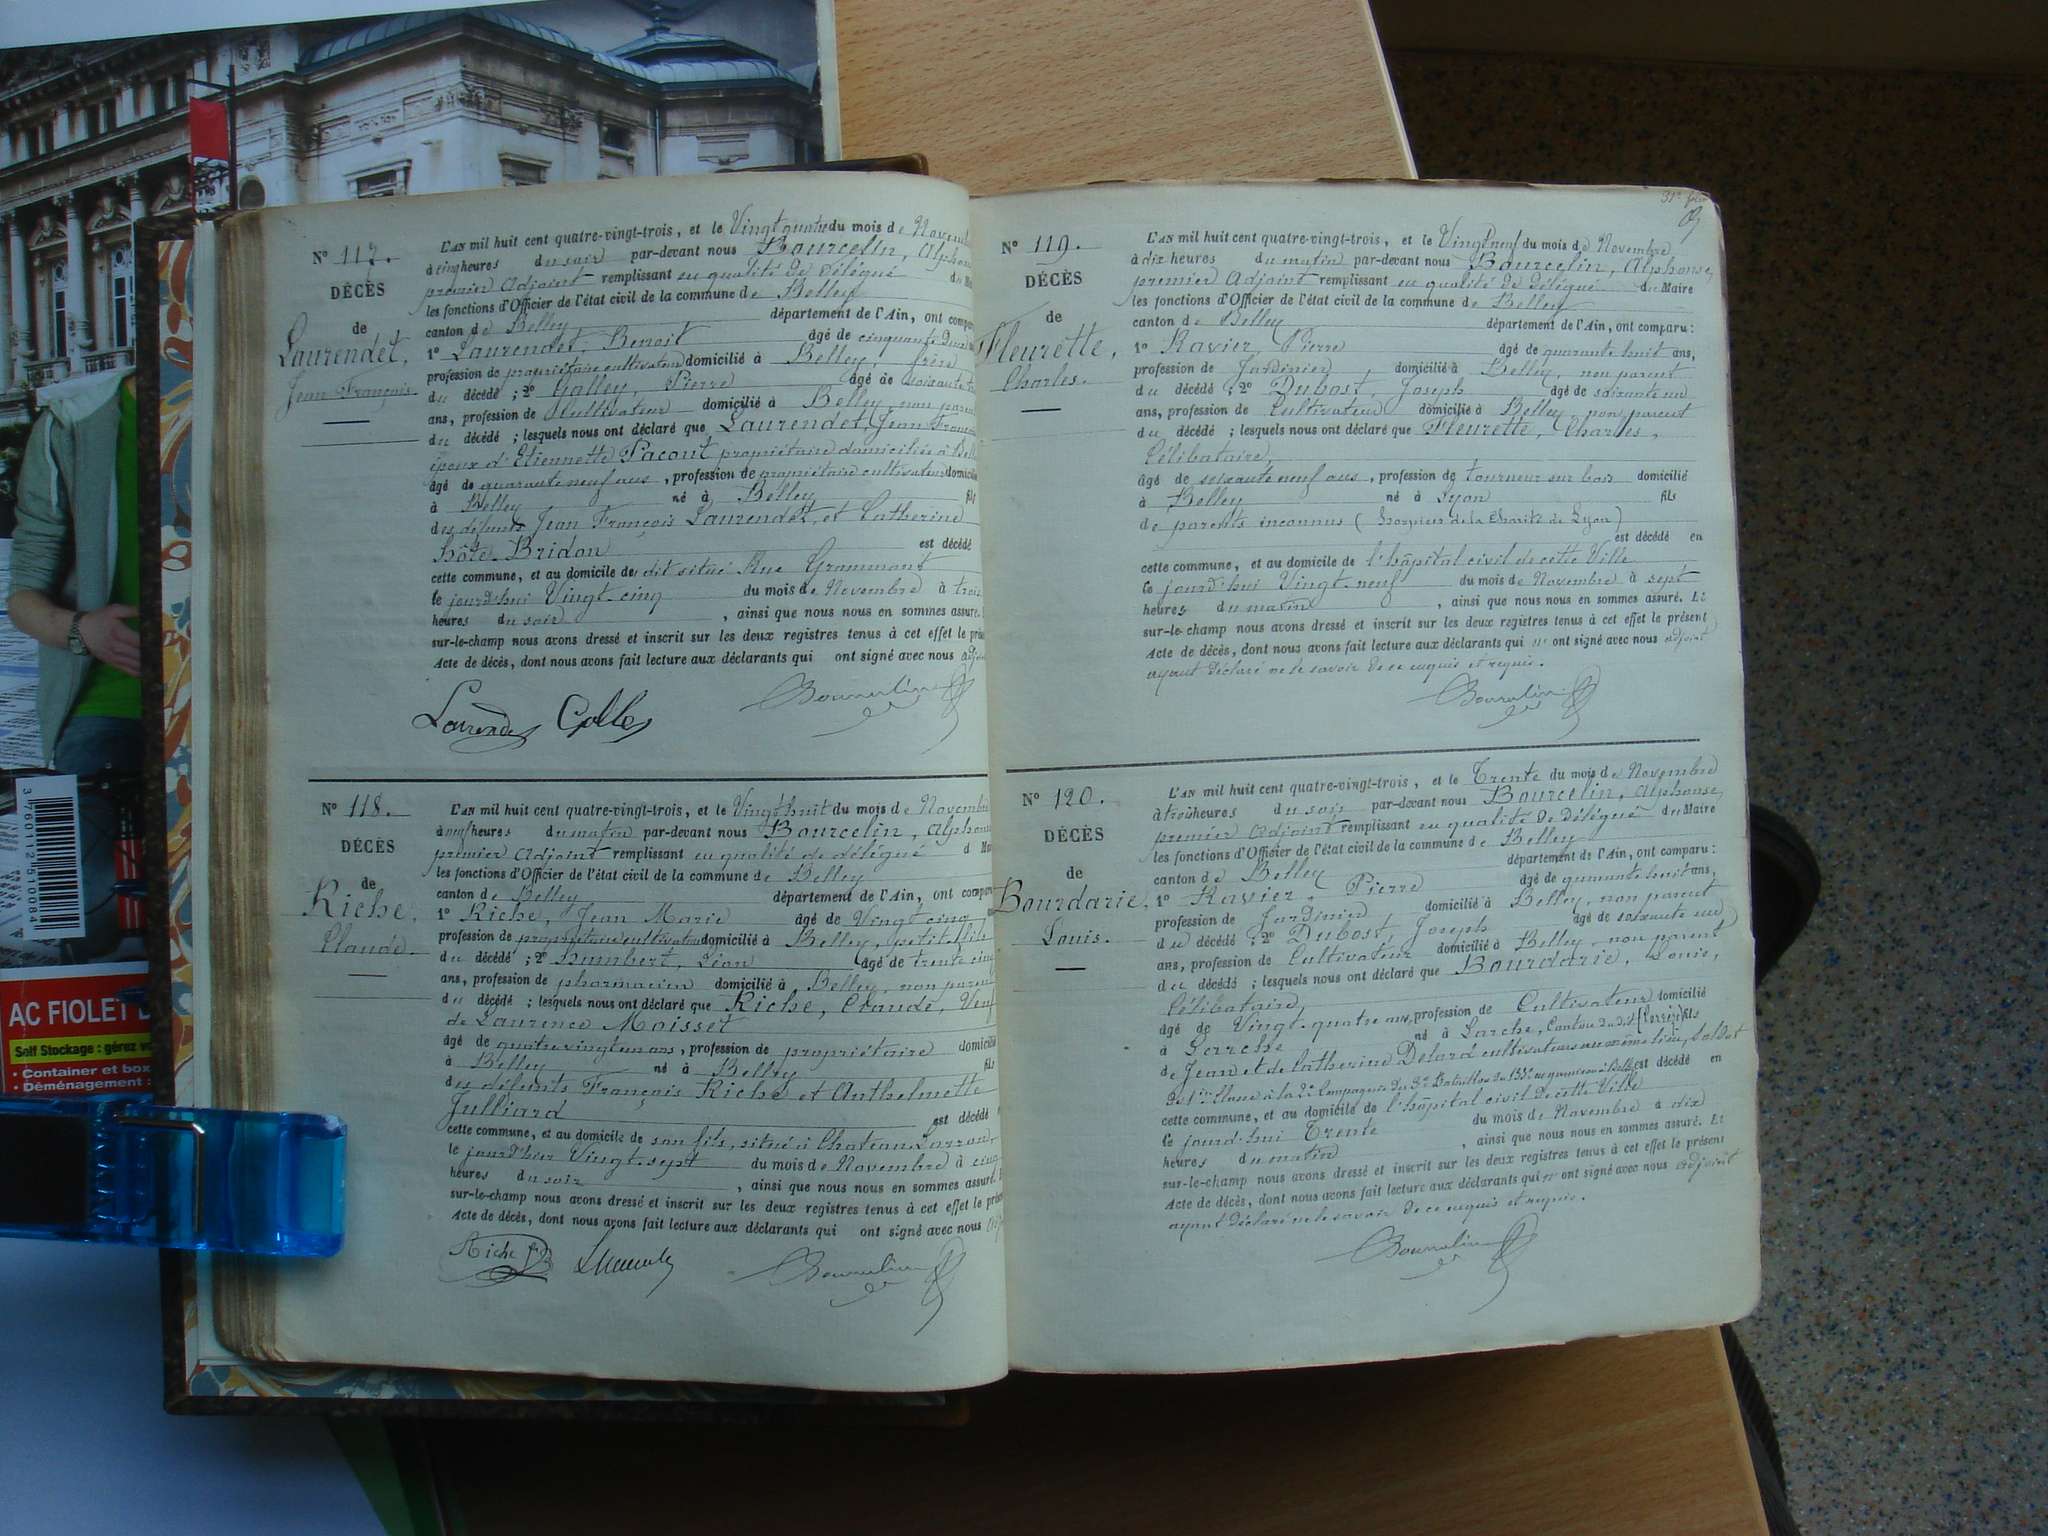 N° 117.
DÉCÈS
de
Laurendet,
Jean François.
L'AN mil huit cent quatre-vingt-trois, et le Vingt quatre du mois de
à cinq heures du soir par-devant nous Bourcelin,
premier Adjoint remplissant en qualité de délégué
les fonctions d'Officier de l'état civil de la commune de Belley
canton de Belley département de l'Ain, ont
1° Laurendet, Benoit âgé de cinquante
profession de propriétaire cultivateur domicilié à Belley, frère
du décédé ; 2° Galley, Pierre âgé de soixante
ans, profession de Cultivateur domicilié à Belley, non
du décédé ; lesquels nous ont déclaré que Laurendet, Jean
époux d'Etiennette Pacout propriétaire domiciliée à
âgé de quarante neuf ans, profession de propriétaire cultivateur
à Belley né à Belley fils
des défunts Jean François Laurendet, et Catherine
hôte-Bridon est décédé
cette commune, et au domicile de dit situé Rue Grammont
le jourd'hui Vingt-cinq du mois de Novembre à trois
heures du soir, ainsi que nous nous en sommes assuré.
sur-le-champ nous avons dressé et inscrit sur les deux registres tenus à cet effet le
Acte de décès, dont nous avons fait lecture aux déclarants qui ont signé avec nous
N° 118.
DÉCÈS
de
Riche,
Claude.
L'AN mil huit cent quatre-vingt-trois, et le Vingt huit du mois de
à neuf heures du matin par-devant nous Bourcelin,
premier Adjoint remplissant en qualité de délégué
les fonctions d'Officier de l'état civil de la commune de Belley
canton de Belley département de l'Ain, ont
1° Riche, Jean Marie âgé de Vingt cinq
profession de propriétaire cultivateur domicilié à Belley, petit-fils
du décédé ; 2° Humbert, Léon âgé de trente cinq
ans, profession de pharmacien domicilié à Belley, non
du décédé ; lesquels nous ont déclaré que Riche, Claude,
de Laurence Moisset
âgé de quatre vingt un ans, profession de propriétaire
à Belley né à Belley fils
des défunts François Riche et Anthelmette
Julliard est décédé
cette commune, et au domicile de son fils, situé à Château
le jourd'hier Vingt-sept du mois de Novembre à cinq
heures du soir, ainsi que nous nous en sommes assuré.
sur-le-champ nous avons dressé et inscrit sur les deux registres tenus à cet effet le
Acte de décès, dont nous avons fait lecture aux déclarants qui ont signé avec nous
Riche
N° 119.
DÉCÈS
de
Fleurette,
Charles.
L'AN mil huit cent quatre-vingt-trois, et le Vingt neuf du mois de Novembre
à dix heures du matin par-devant nous Bourcelin, Alphonse,
premier Adjoint remplissant en qualité de Délégué du Maire
les fonctions d'Officier de l'état civil de la commune de Belley
canton de Belley département de l'Ain, ont comparu :
1° Ravier Pierre âgé de quarante huit ans,
profession de Jardinier, domicilié à Belley, non parent
du décédé ; 2° Dubost, Joseph âgé de soixante un
ans, profession de Cultivateur domicilié à Belley non parent
du décédé ; lesquels nous ont déclaré que Fleurette, Charles,
Célibataire,
âgé de soixante neuf ans, profession de tourneur sur bois domicilié
à Belley né à Lyon fils
de parents inconnus (hospices de la Charité de Lyon)
est décédé en
cette commune, et au domicile de l'hôpital civil de cette Ville
le jourd'hui Vingt-neuf du mois de Novembre à sept
heures du matin, ainsi que nous nous en sommes assuré. Et
sur-le-champ nous avons dressé et inscrit sur les deux registres tenus à cet effet le présent
Acte de décès, dont nous avons fait lecture aux déclarants qui n'ont signé avec nous adjoint
ayant déclaré ne le savoir de ce enquis et requis.
N° 120.
DÉCÈS
de
Bourdarie,
Louis.
L'AN mil huit cent quatre-vingt-trois, et le Trente du mois de Novembre
à trois heures du soir par-devant nous Bourcelin, Alphonse,
premier Adjoint remplissant en qualité de Délégué du Maire
les fonctions d'Officier de l'état civil de la commune de Belley
canton de Belley département de l'Ain, ont comparu :
1° Ravier, Pierre âgé de quarante huit ans,
profession de Jardinier domicilié à Belley, non parent
du décédé ; 2° Dubost, Joseph âgé de soixante un
ans, profession de Cultivateur domicilié à Belley non parent
du décédé ; lesquels nous ont déclaré que Bourdarie, Louis,
Célibataire,
âgé de Vingt-quatre ans, profession de Cultivateur domicilié
à né à Larche, Canton du dit (Corrèze) fils
de Jean et de Catherine Delord cultivateurs au même lieu, Soldat
de 1ère Classe à la 2e Compagnie du 3e Bataillon du 133e en garnison à Belley est décédé en
cette commune, et au domicile de l'hôpital civil de cette Ville
le jourd'hui Trente du mois de Novembre à dix
heures du matin, ainsi que nous nous en sommes assuré. Et
sur-le-champ nous avons dressé et inscrit sur les deux registres tenus à cet effet le présent
Acte de décès, dont nous avons fait lecture aux déclarants qui n'ont signé avec nous adjoint
ayant déclaré ne le savoir de ce enquis et requis.
AC FIOLET
Self Stockage : gérez
• Container et box
• Déménagement :
3 760112 510084